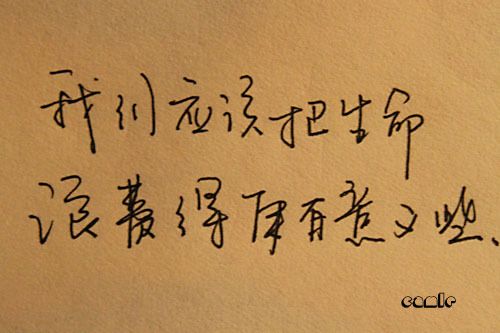 我们应该把生命
浪费得更有意义些、
camle